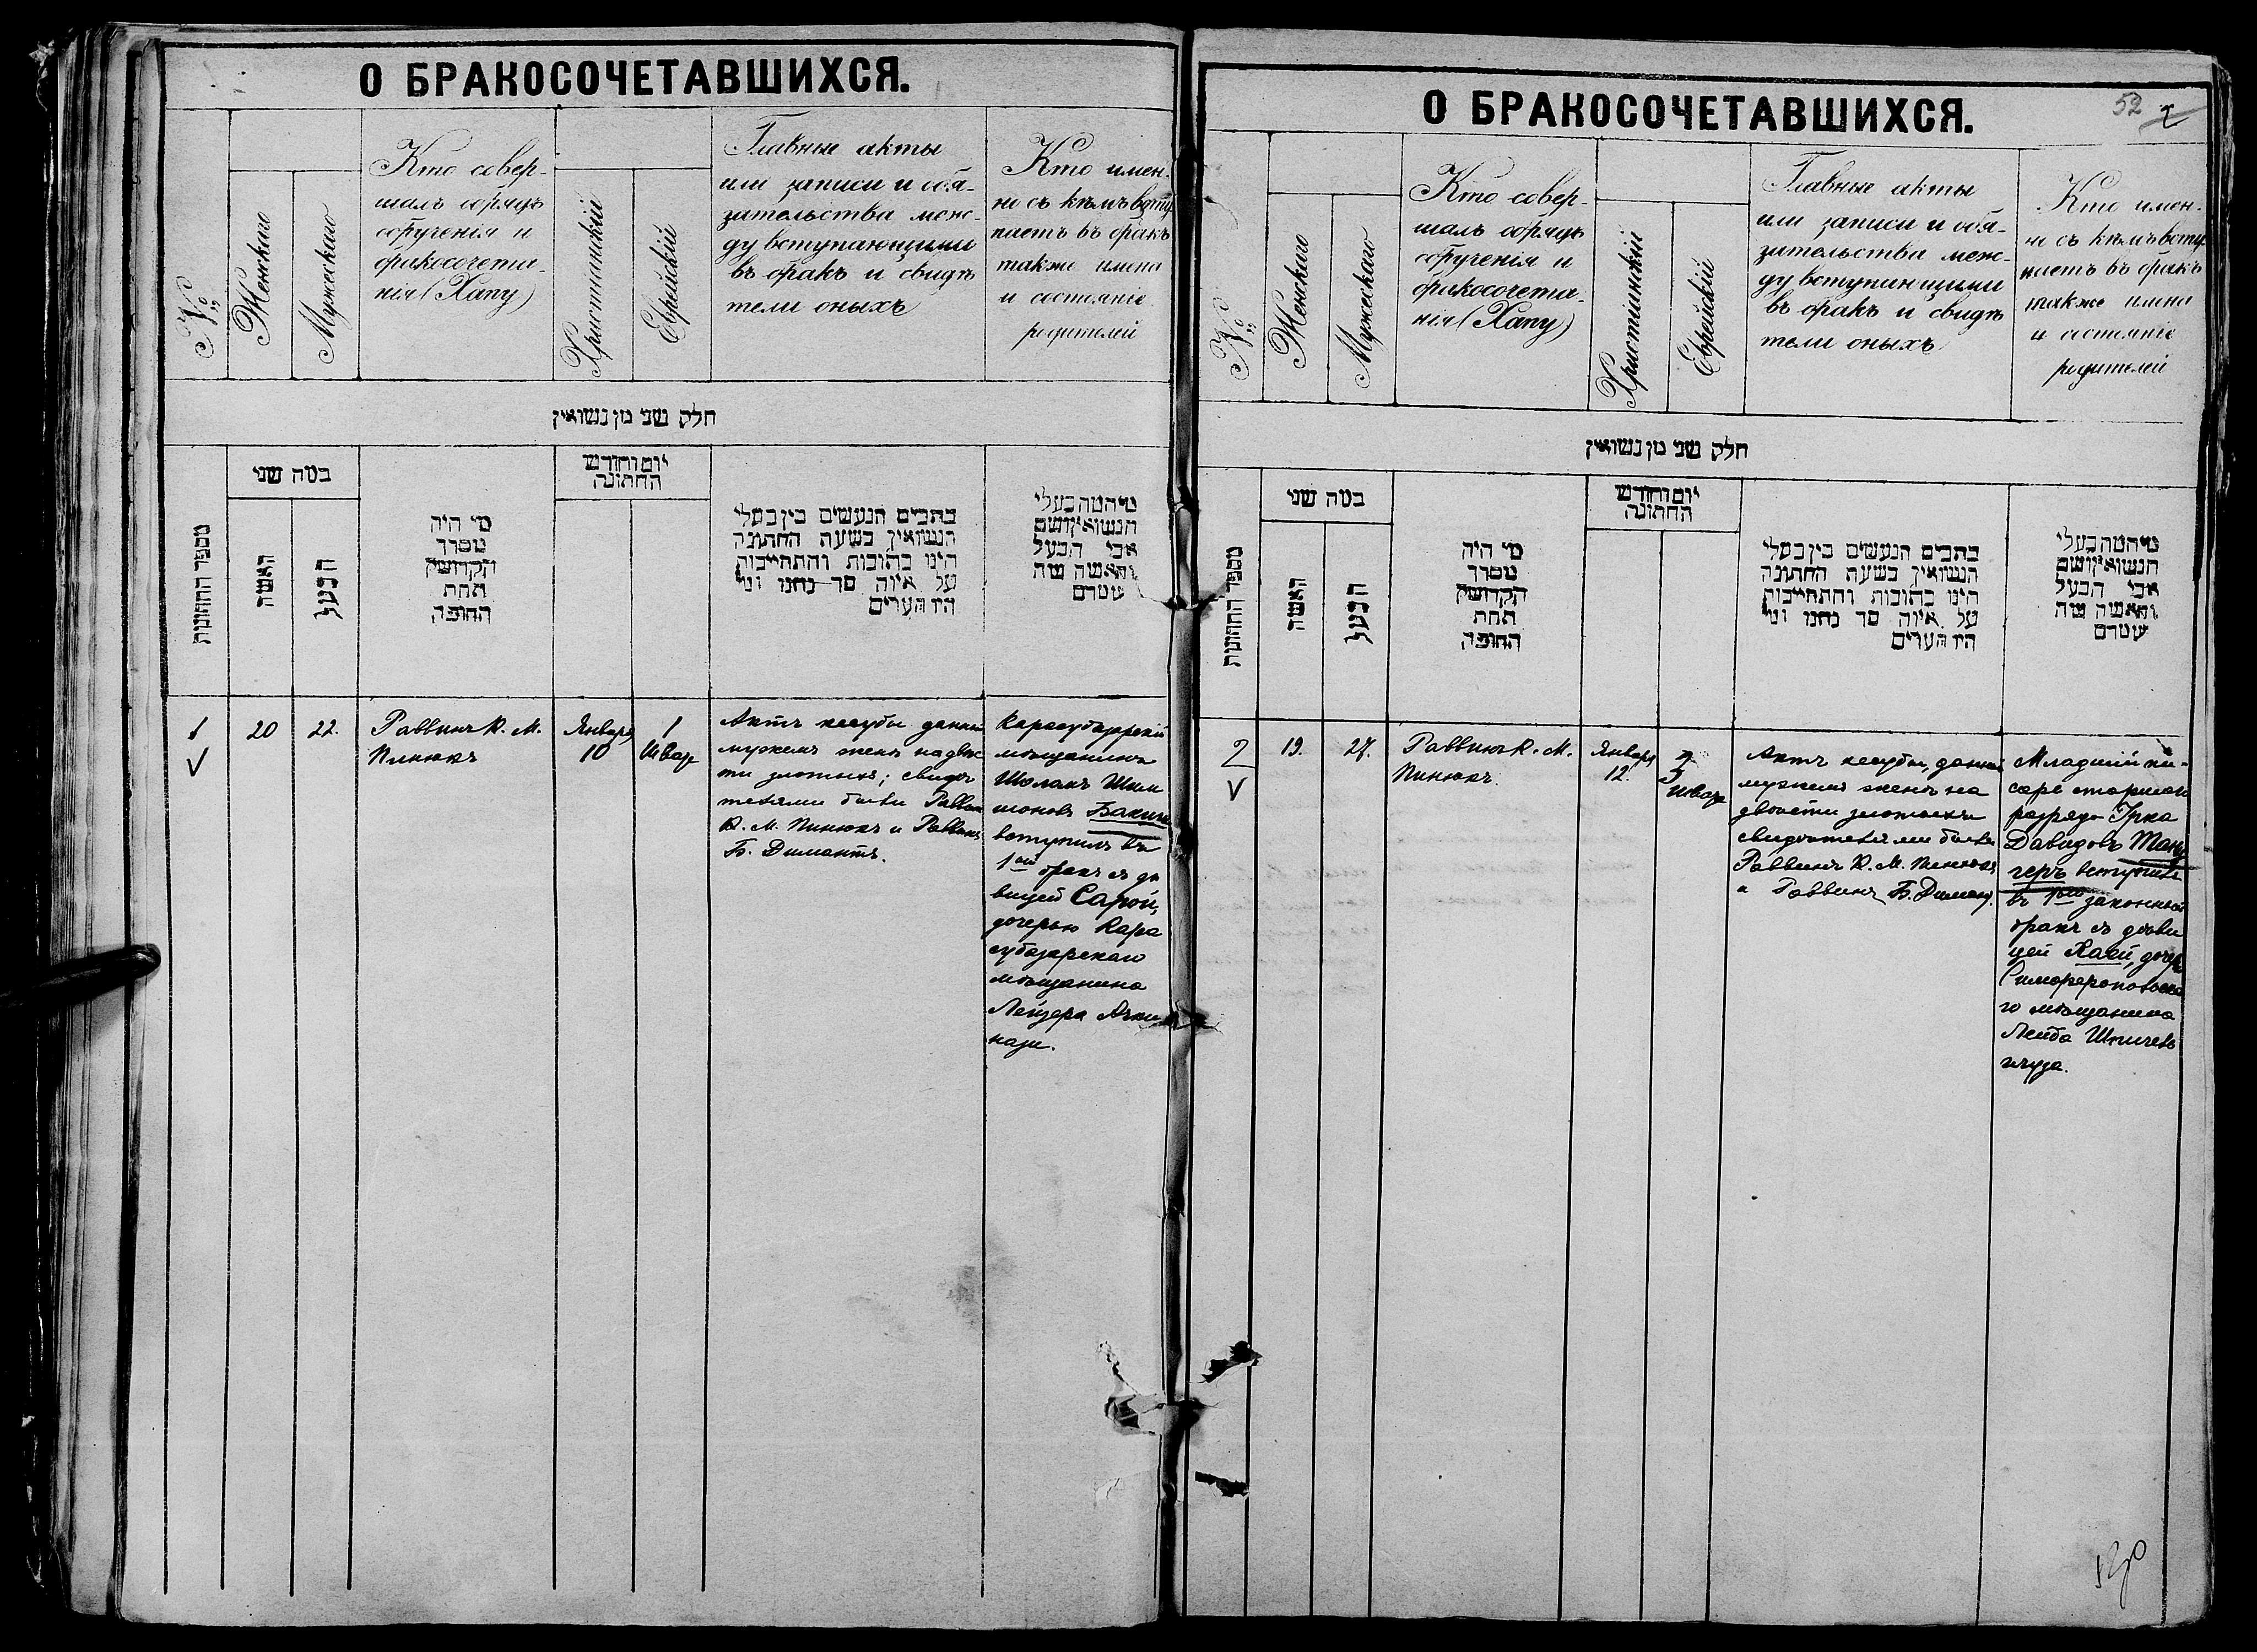 О БРАКОСОЧЕТАВШИХСЯ.
№
Женскаго
Мужескаго
Кто совер-
шалъ обрядъ
обрученія и
бракосочета-
нія (Хапу)
Христіанскій
Еврейскій
Главные акты
или записи и обя-
зательства меж-
ду вступающими
въ бракъ и свидѣ
тели оныхъ
Кто имен-
но съ кѣмъ всту
паетъ въ бракъ
также имена
и состояніе
родителей
חלק שני מן נשואין
מספר החתונות
כמה שני
האשה
הבעל
מי היה
מסדר
הקדושין
תחת
החופה
יום וחודש
החתונה
כתבים הנעשים בין בעלי
הנשואין בשעת החתונה
היינו כתובות והתחייבות
על איזה סך נתנו ומי
היו העדים
מי המה בעלי
הנשואין ושם
אבי הבעל
והאשה מה
שמרם
1
20
22.
Раввинъ К. М.
Пинюкъ
Января
10
1
Шватъ
Актъ кесубы данный
мужемъ женѣ на двѣс
ти злотыхъ; свидѣ
телями были Раввинъ
К. М. Пинюкъ и Раввинъ
Б. Димантъ.
Карасубазарскій
мѣщанинъ
Шоломъ Шим
шоновъ Бакши
вступилъ въ
1ый бракъ съ дѣ
вицей Сарой,
дочерью Кара
субазарскаго
мѣщанина
Лейзера Ачки
нази.
О БРАКОСОЧЕТАВШИХСЯ.
52
2
№
Женскаго
Мужескаго
Кто совер-
шалъ обрядъ
обрученія и
бракосочета-
нія (Хапу)
Христіанскій
Еврейскій
Главные акты
или записи и обя-
зательства меж-
ду вступающими
въ бракъ и свидѣ
тели оныхъ
Кто имен-
но съ кѣмъ всту
паетъ въ бракъ
также имена
и состояніе
родителей
חלק שני מן נשואין
מספר החתונות
כמה שני
האשה
הבעל
מי היה
מסדר
הקדושין
תחת
החופה
יום וחודש
החתונה
כתבים הנעשים בין בעלי
הנשואין בשעת החתונה
היינו כתובות והתחייבות
על איזה סך נתנו ומי
היו העדים
מי המה בעלי
הנשואין ושם
אבי הבעל
והאשה מה
שמרם
2
19.
27.
Раввинъ К. М.
Пинюкъ.
Января
12.
3
Шватъ
Актъ кесубы, данный
мужемъ женѣ на
двѣсти злотыхъ
свидѣтелями были
Раввинъ К. М. Пинюкъ
и Раввинъ Б. Димант.
Младшій пи-
сарь старшаго
разряда Ірка
Давидовъ Тан
геръ вступилъ
въ 1ый законный
бракъ съ дѣви
цей Хаей, дочер
Симферопольска
го мѣщанина
Лейба